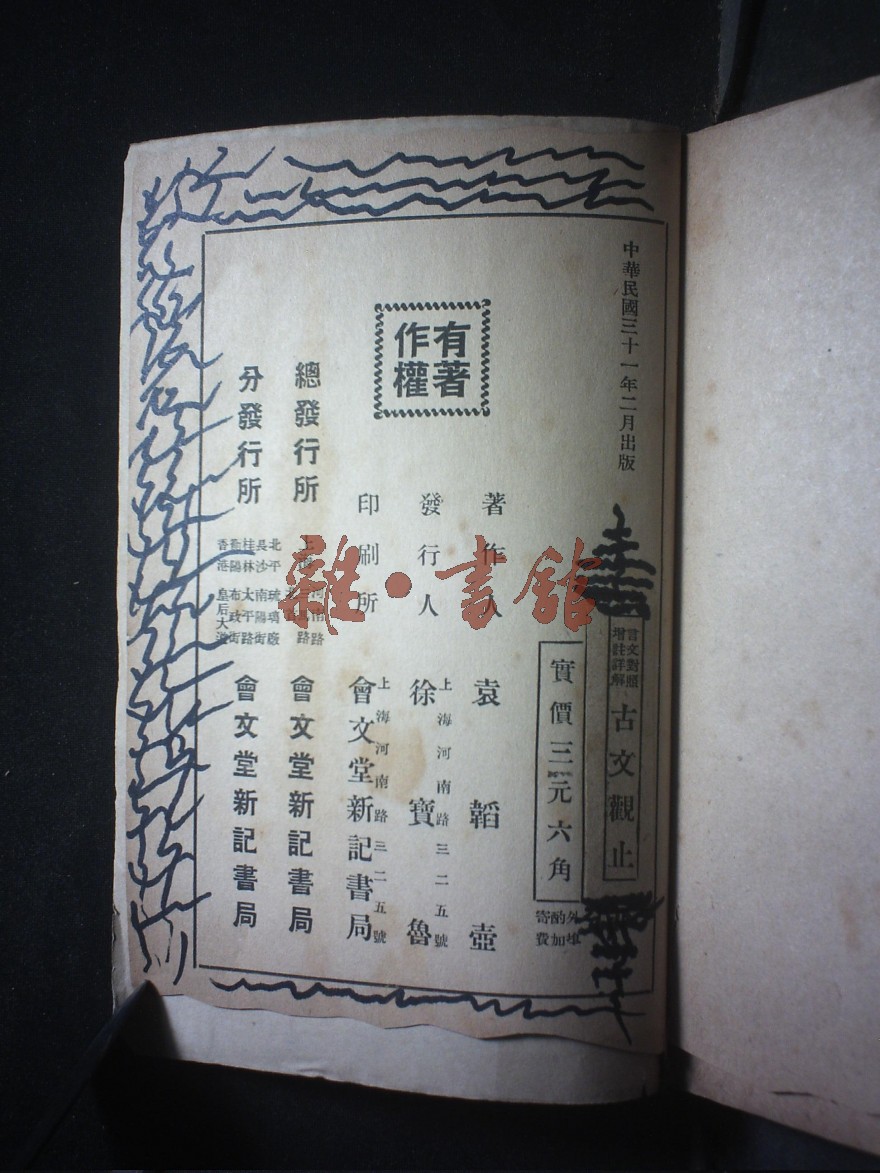 中華民國三十一年二月出版
言文對照
增註詳解
古文觀止
實價三元六角
外埠
酌加
寄費
有著
作權
著作人 袁韜壺
發行人 徐寶魯
上海河南路三二五號
印刷所 會文堂新記書局
上海河南路三二五號
總發行所
河南路
會文堂新記書局
分發行所
北平琉璃廠
長沙南陽街
桂林太平路
衡陽布政街
香港皇后大道
會文堂新記書局
雜·書館